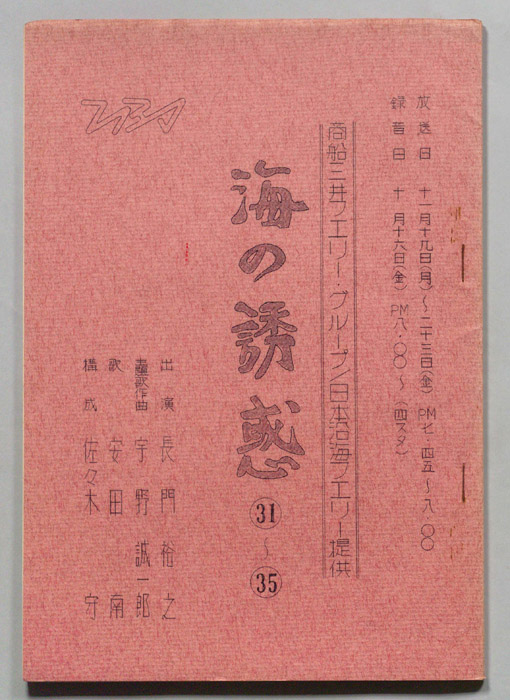 放送日 十一月十九日(月)～二十三日(金) PM七・四五～八・〇〇
録音日 十月十六日(金) PM八・〇〇～(四スタ)
商船三井フェリー・グループ/日本沿海フェリー提供
海の誘惑
㉛～㉟
出演 長門裕之
作曲 宇野誠一郎
歌 安田南
構成 佐々木守